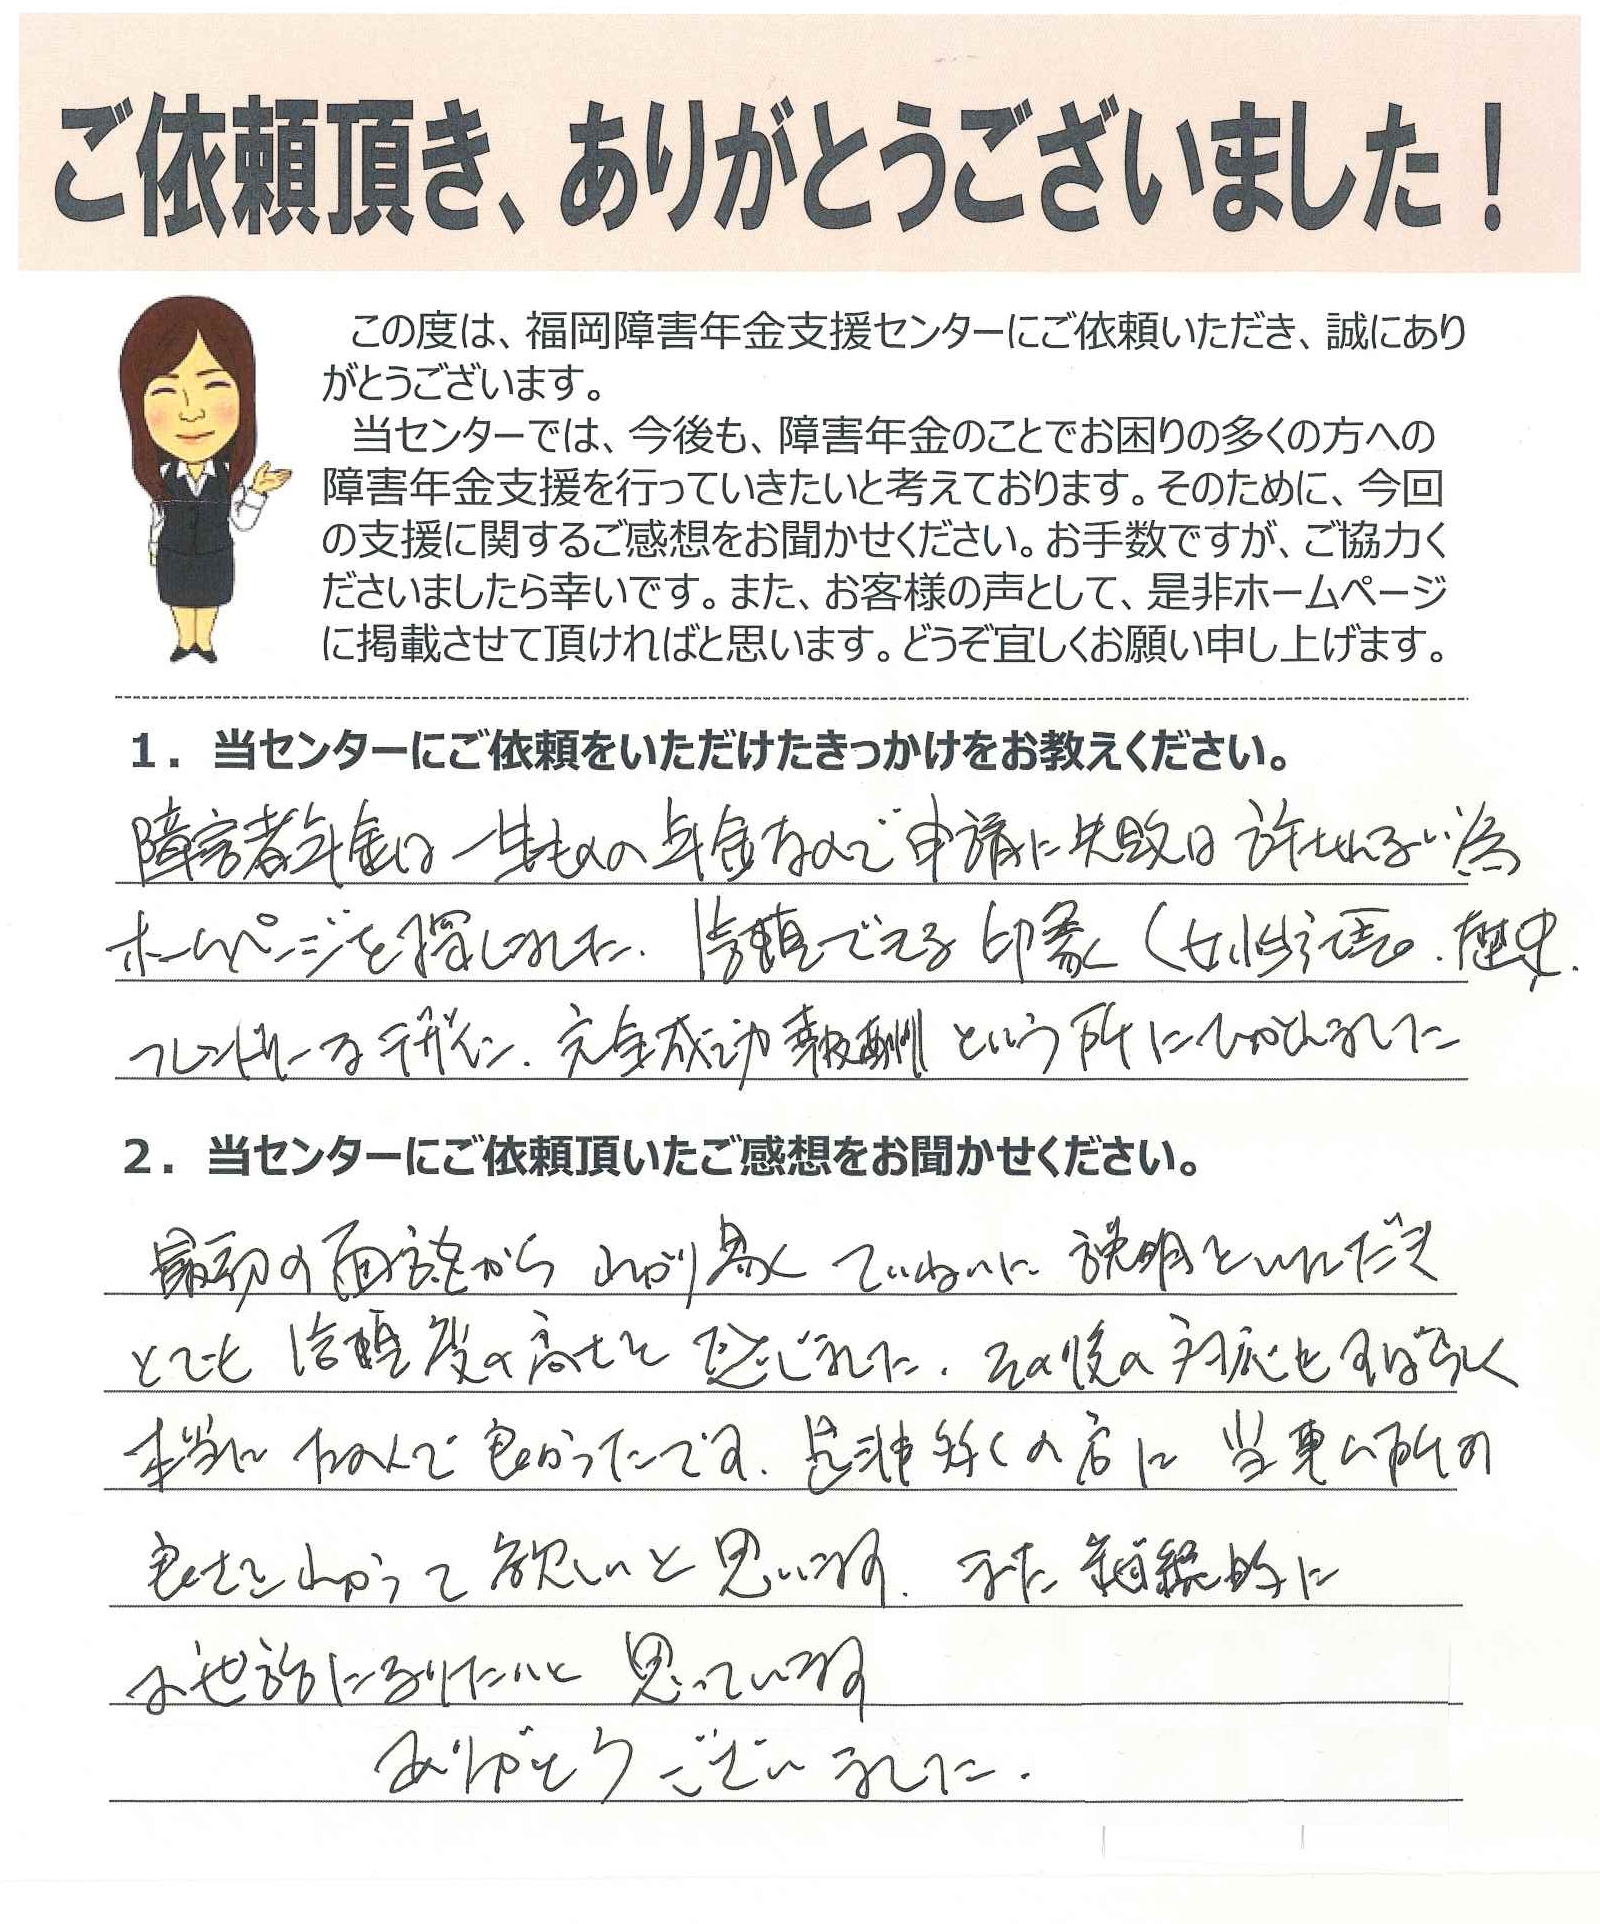 ご依頼頂き、ありがとうございました！
この度は、福岡障害年金支援センターにご依頼いただき、誠にあり
がとうございます。
当センターでは、今後も、障害年金のことでお困りの多くの方への
障害年金支援を行っていきたいと考えております。そのために、今回
の支援に関するご感想をお聞かせください。お手数ですが、ご協力く
ださいましたら幸いです。また、お客様の声として、是非ホームページ
に掲載させて頂ければと思います。どうぞ宜しくお願い申し上げます。
1．当センターにご依頼をいただけたきっかけをお教えください。
障害者年金は一生ものの年金なので申請に失敗は許されない為
ホームページを探しました．信頼できる印象（女性 歴史．
フレンドリーなデザイン．完全成功報酬という所にひかれました
2．当センターにご依頼頂いたご感想をお聞かせください。
最初の面談からわかり易くていねいに説明をいただき
とても信頼度の高さを感じました．その後の対応もすばらしく
本当にたのんで良かったです．是非多くの方に当事ム所の
良さをわかって欲しいと思います．また継続的に
お世話になりたいと思っています
ありがとうございました．